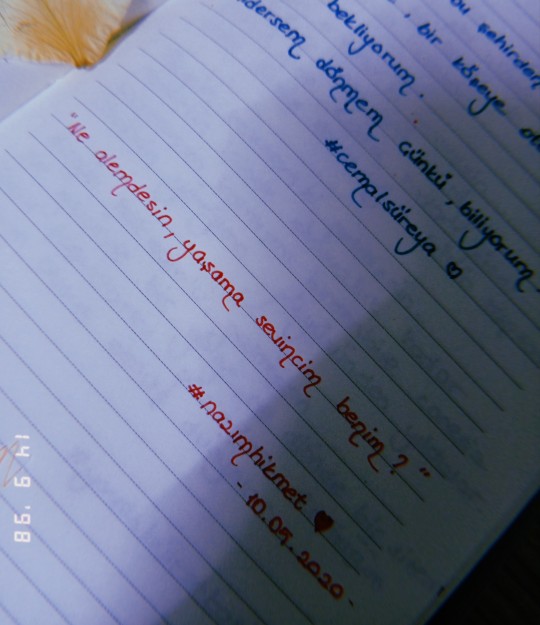 bu şehirden
, bir köşeye
bekliyorum.
dönmem çünkü, biliyorum.
#cemalsüreya ♥
"Ne alemdesin, yaşama sevincim benim?"
#nazımhikmet ♥
- 10.05.2020 -
14 9 '98